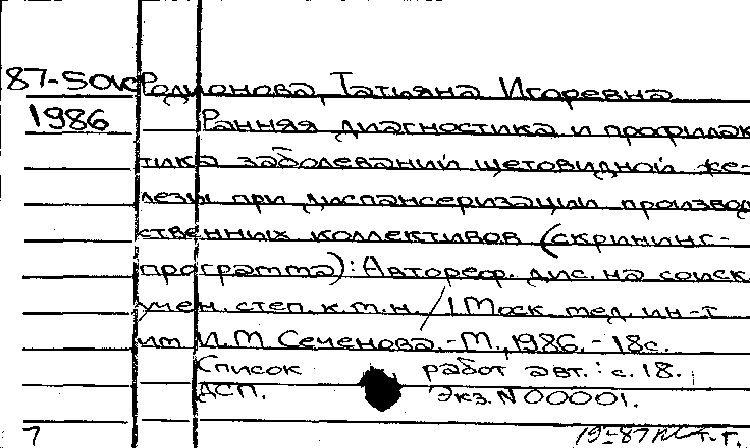 87-5 Родионова, Татьяна Игоревна
1986 Ранняя диагностика и профилак
тика заболеваний щитовидной же-
лезы при диспансеризации производ
ственных коллективов (скрининг-
программа): Автореф. дис. на соиск.
учен. степ. к.м.н. / 1 Моск. мед. ин-т
им И.М Сеченова. - М., 1986. - 18с.
Список работ авт.: с. 18.
ДСП. Экз. N 00001.
7 19-87